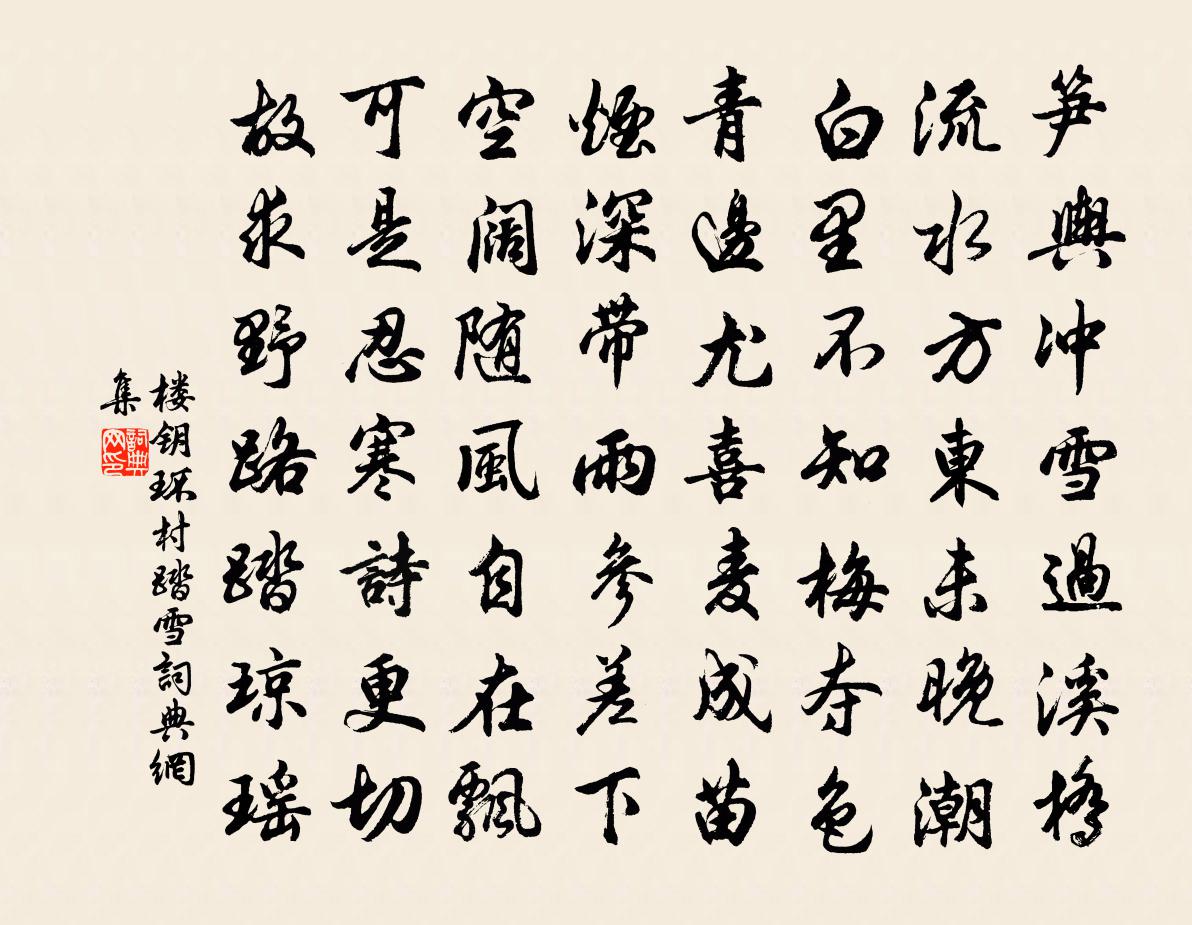 笋輿冲雪過溪橋
流水方東未晚潮
白里不知梅夺色
青邊尤喜麦成苗
煙深带雨參差下
空阔随風自在飄
可是忍寒詩更切
故求野路踏琼瑶
楼钥环村踏雪詞典網
集
詞典网印